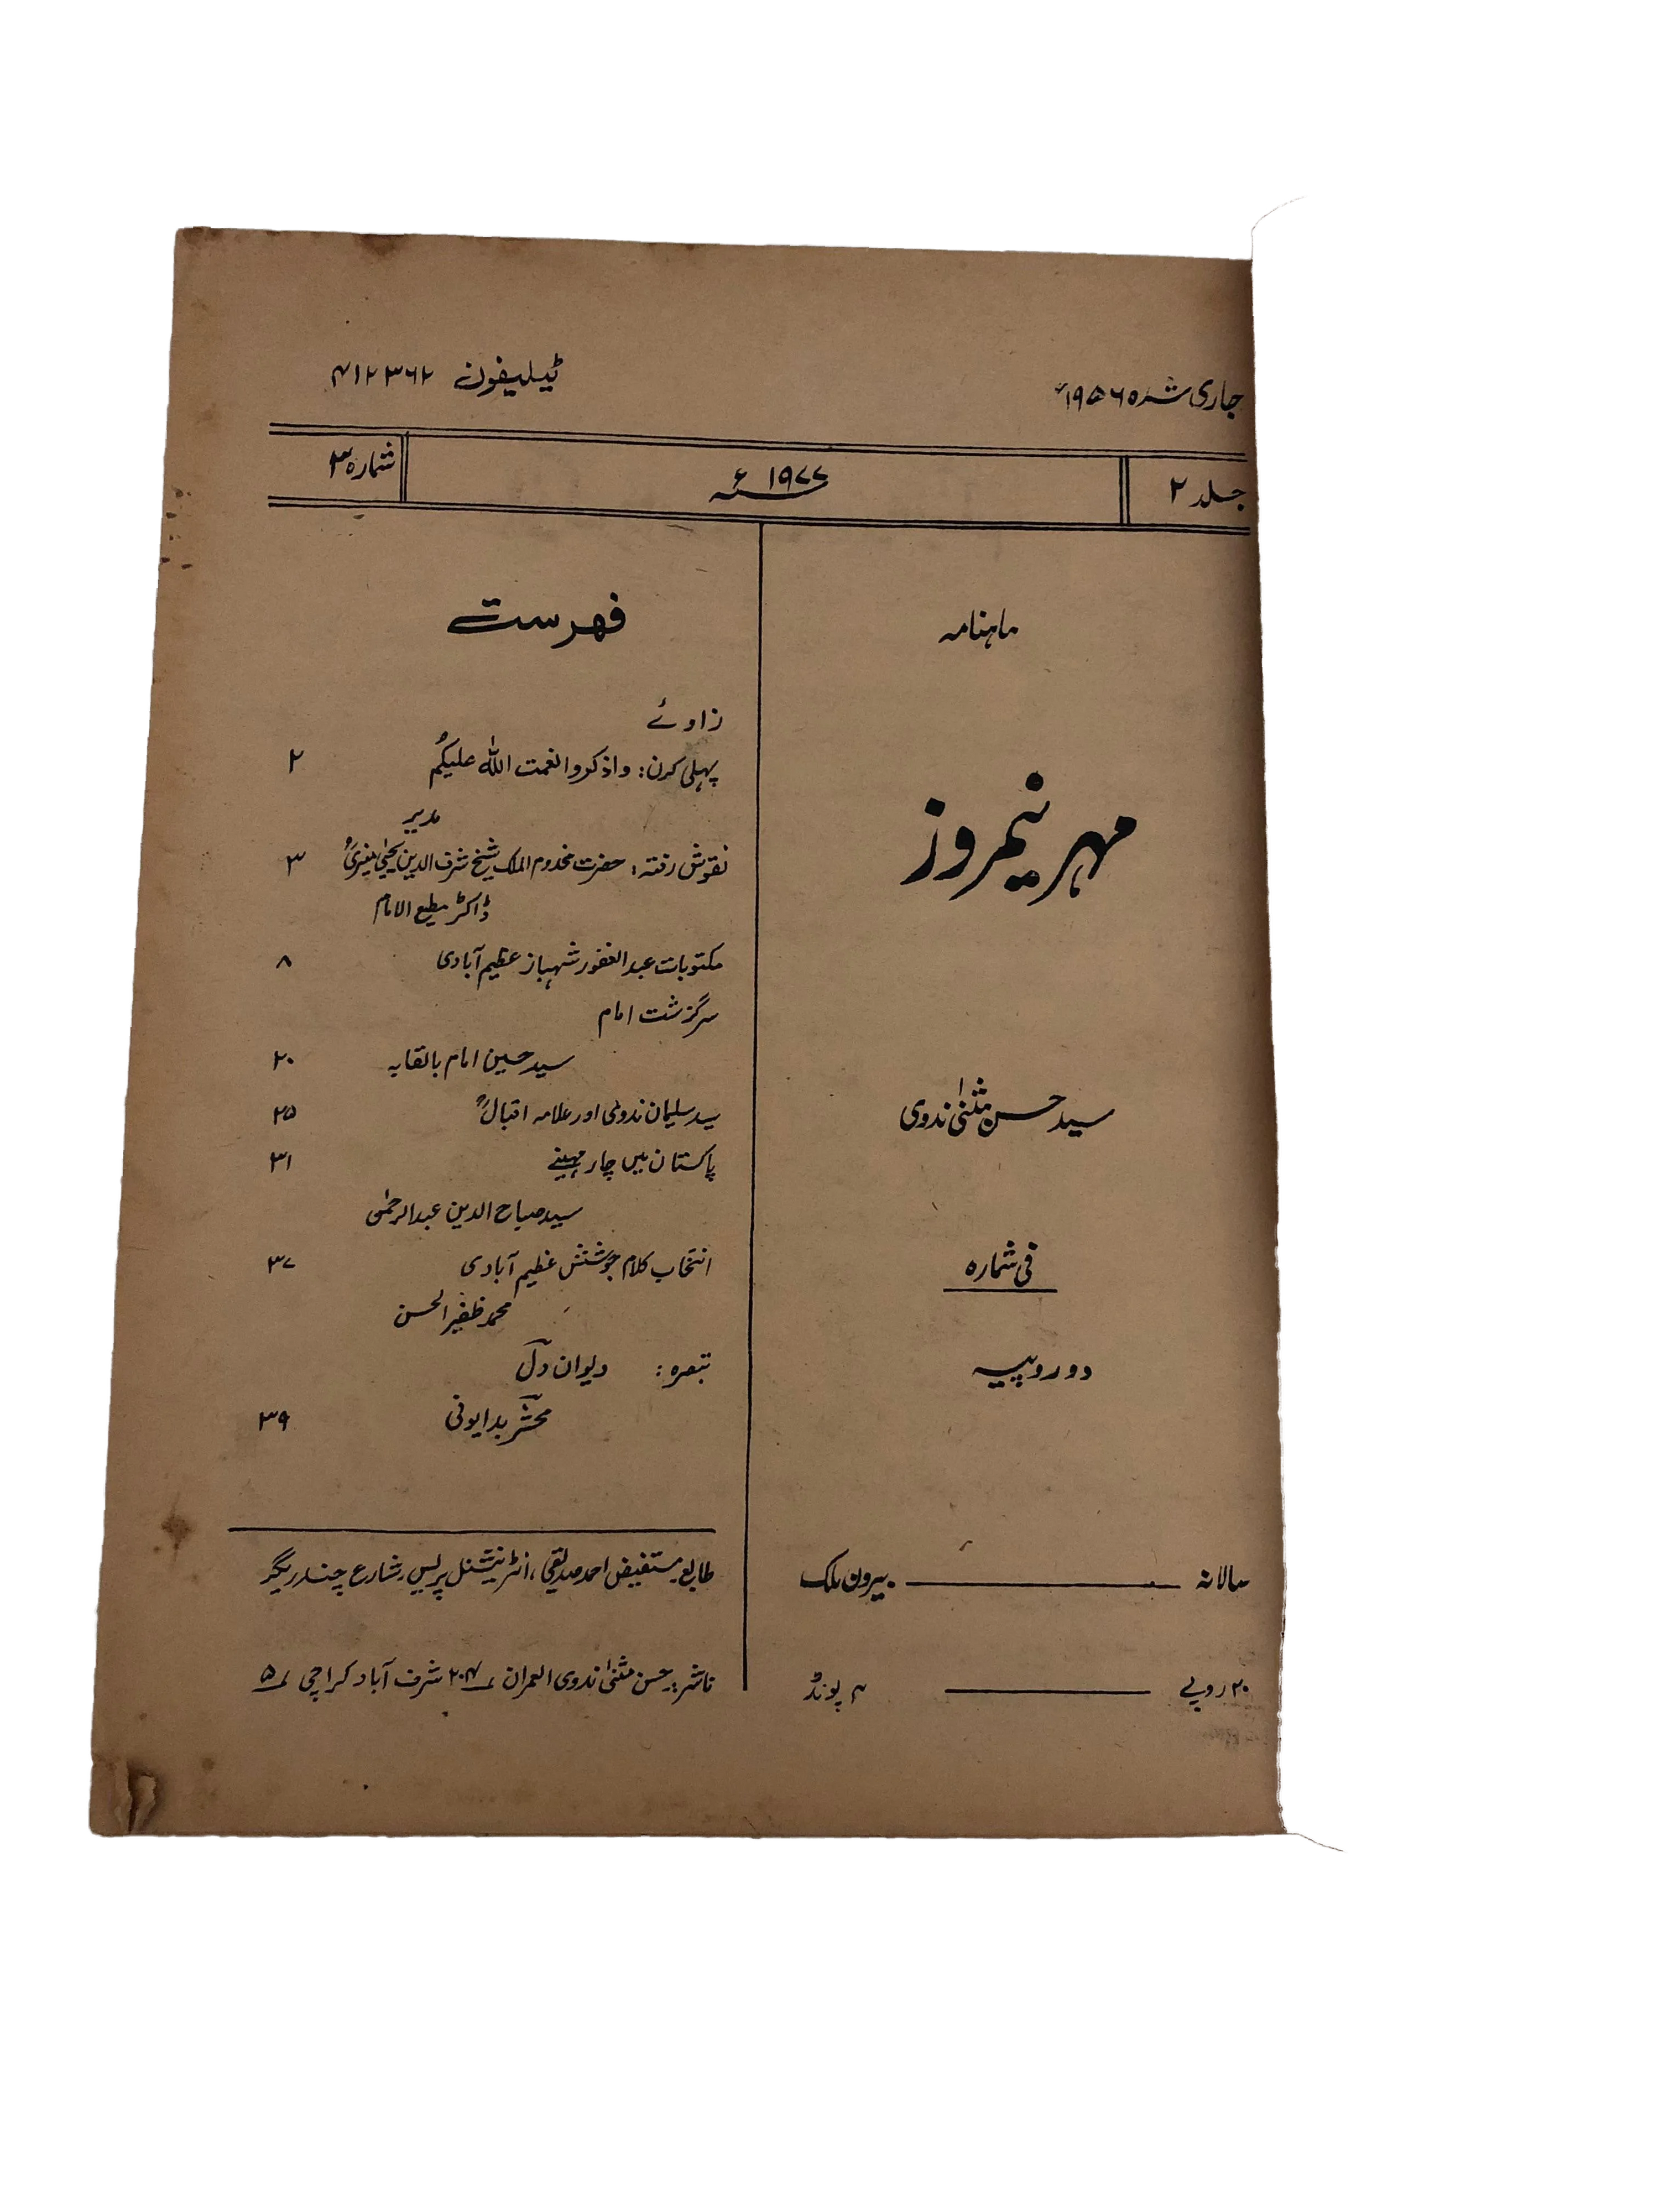 جاری شدہ ۱۹۵۶ء
ٹیلیفون ۴۱۲۳۶۲
جلد ۲
۱۹۷۷ء
شمارہ ۳
ماہنامہ
مہر نیمروز
سید حسن مثنیٰ ندوی
فی شمارہ
دو روپیہ
سالانہ ـــــــ بیرون ملک
۲۰ روپے ـــــــ ۴ پونڈ
فہرست
زاوئے
پہلی کرن: واذکروا نعمت اللہ علیکم ۲
مدیر
نقوش رفتہ: حضرت مخدوم الملک شیخ شرف الدین یحییٰ منیریؒ ۳
ڈاکٹر مطیع الامام
مکتوبات عبدالغفور شہباز عظیم آبادی ۸
سرگزشت امام
سید حسین امام بالقابہ ۲۰
سید سلیمان ندویؒ اور علامہ اقبالؒ ۲۵
پاکستان میں چار مہینے ۳۱
سید صباح الدین عبدالرحمٰن
انتخاب کلام جوشش عظیم آبادی ۳۷
محمد ظفیر الحسن
تبصرہ: دیوان دل
محشر بدایونی ۳۹
طابع مستفیض احمد صدیقی، انٹرنیشنل پریس، شارع چندریگر
ناشر: حسن مثنیٰ ندوی العمران ۲۰۴ شرف آباد کراچی ۵